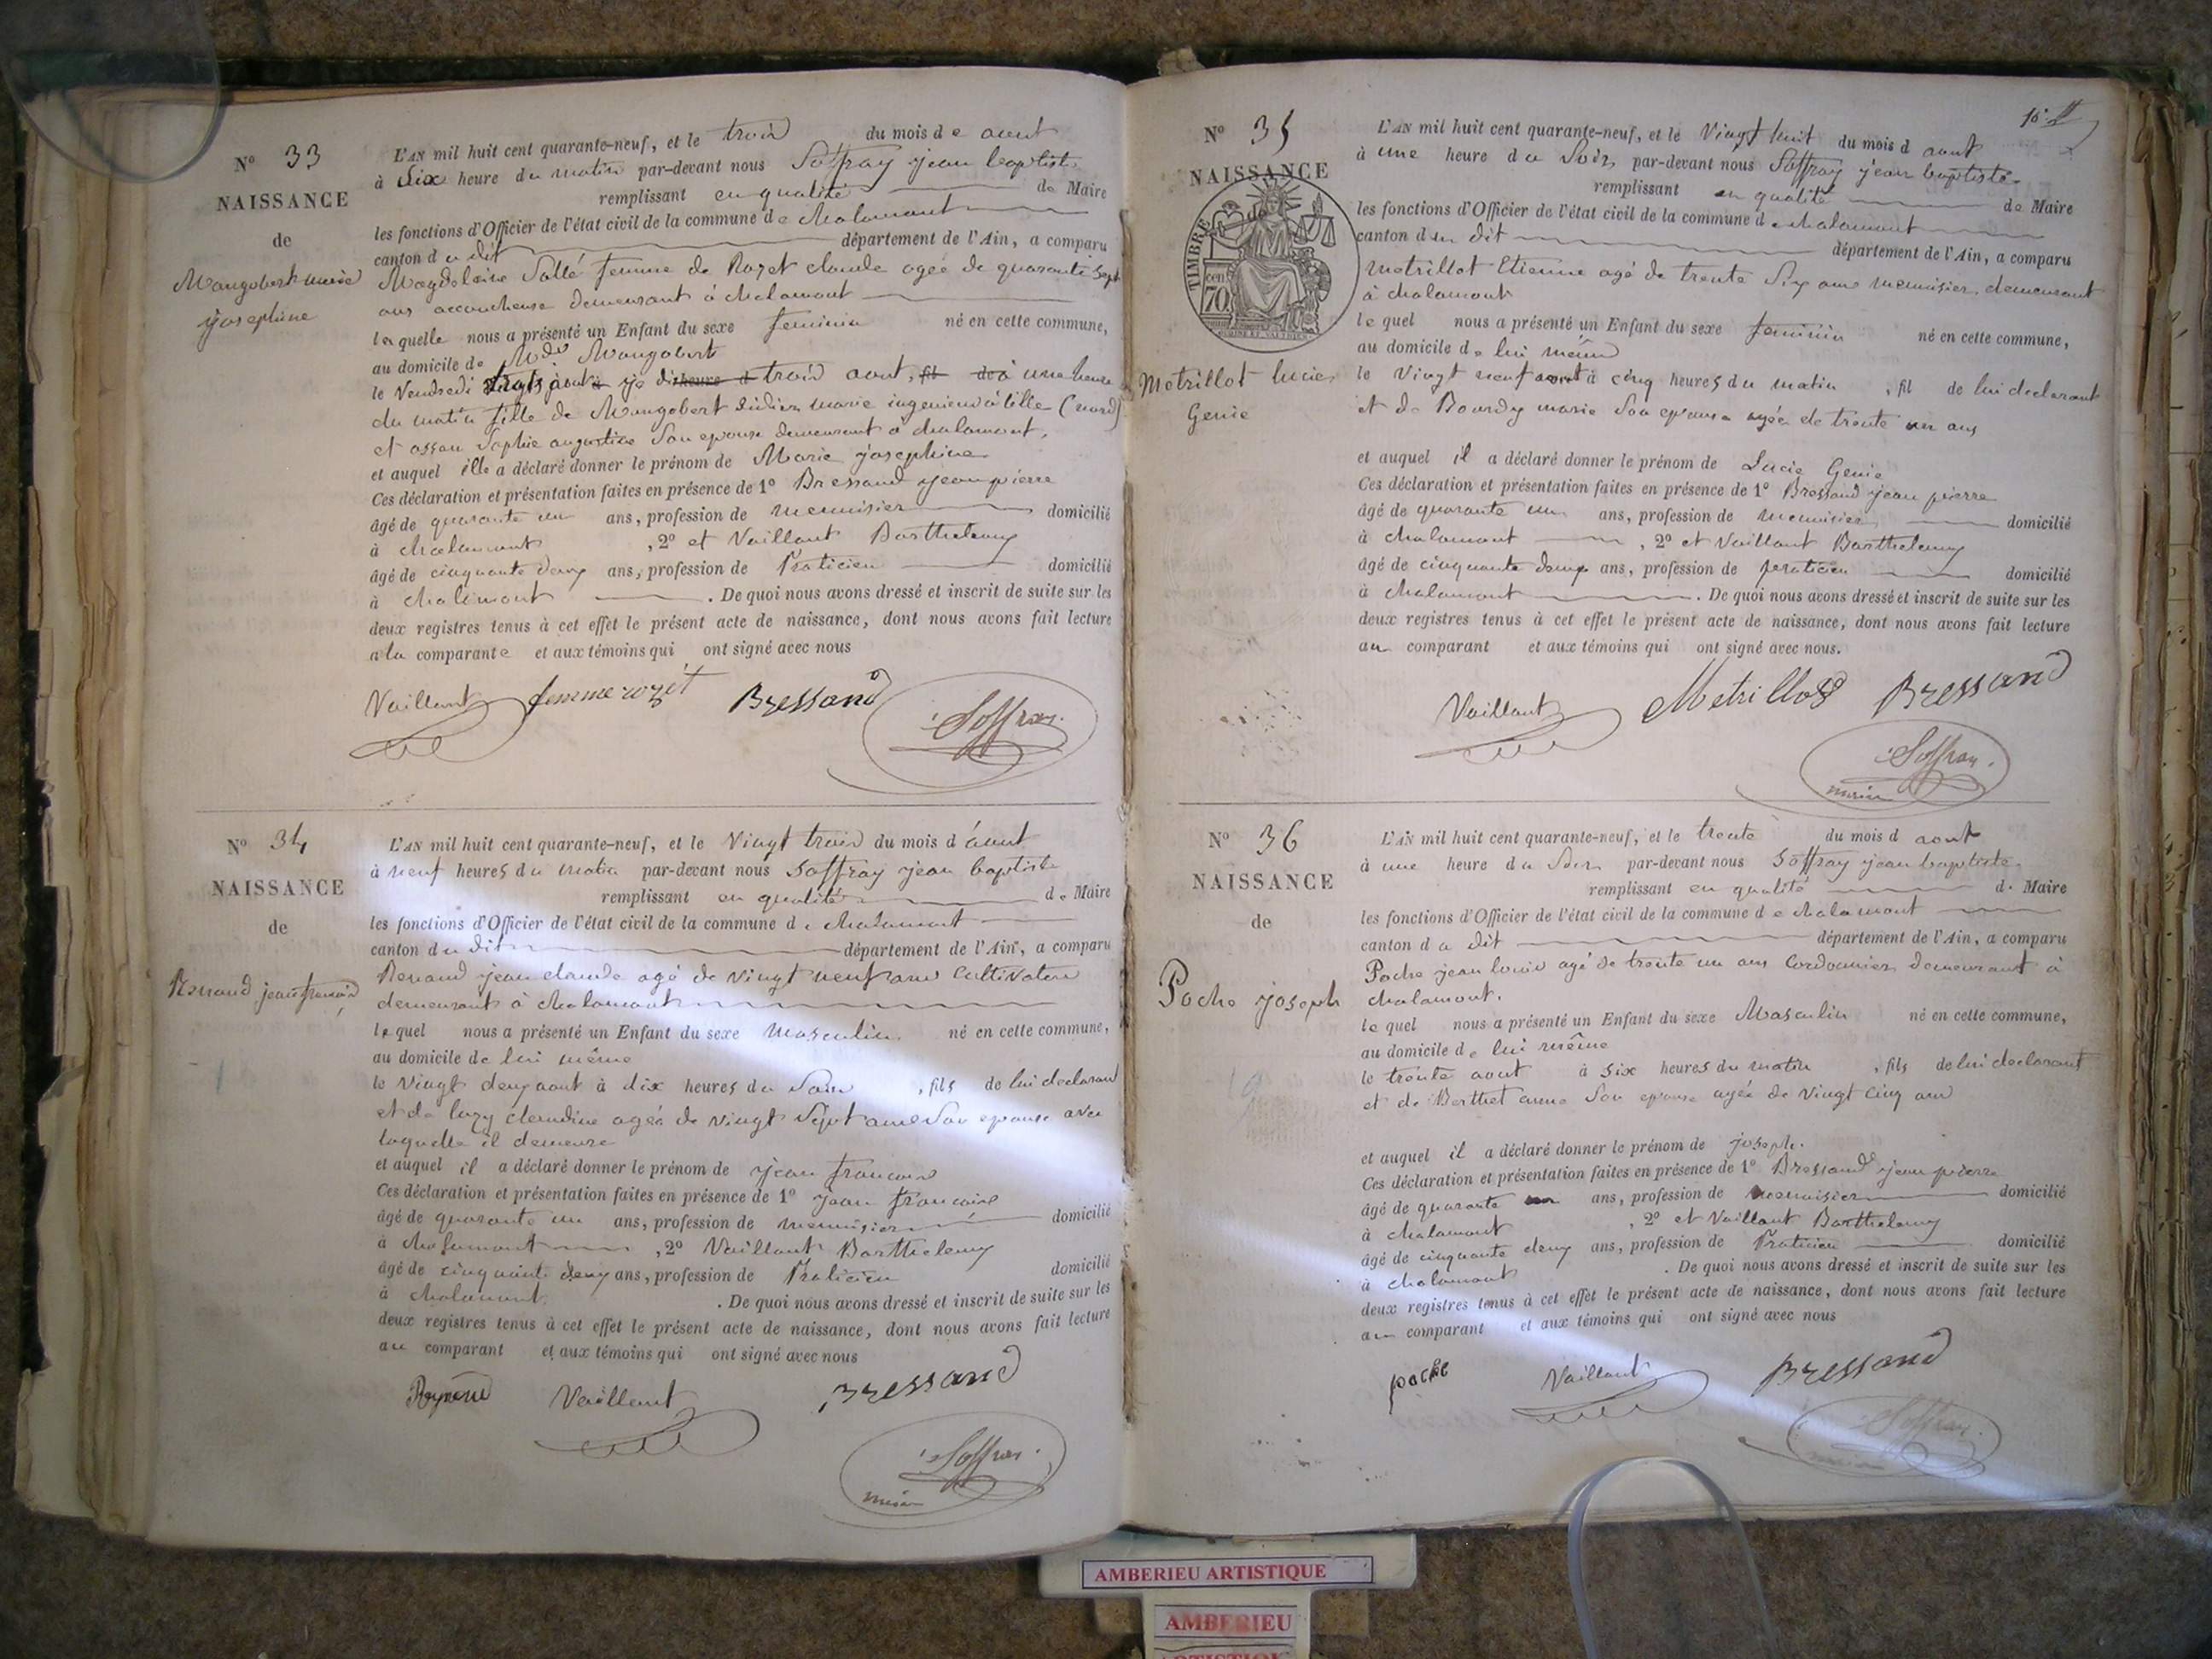 N° 33
NAISSANCE
de
Mangobert marie
josephine
L'AN mil huit cent quarante-neuf, et le trois du mois de aout
à Six heure du matin par-devant nous Soffray jean baptiste
remplissant en qualité de Maire
les fonctions d'Officier de l'état civil de la commune de chalamont
canton du dit département de l'Ain, a comparu
Magdelaine Sallé femme de Rozet claude agée de quarante sept
ans accoucheuse demeurant à chalamont
laquelle nous a présenté un Enfant du sexe feminin né en cette commune,
au domicile de Mde Mangobert
le Vendredi trois aout, à une heure
du matin fille de Mangobert didier marie ingenieur à lille (nord)
et assau Sophie augustine Son epouse demeurant à chalamont,
et auquel elle a déclaré donner le prénom de Marie josephine
Ces déclaration et présentation faites en présence de 1° Bressand jean pierre
âgé de quarante un ans, profession de menuisier domicilié
à chalamont , 2° et Vaillant Barthelemy
âgé de cinquante deux ans, profession de Praticien domicilié
à chalamont . De quoi nous avons dressé et inscrit de suite sur les
deux registres tenus à cet effet le présent acte de naissance, dont nous avons fait lecture
a la comparante et aux témoins qui ont signé avec nous
Vaillant femme rozet Bressand
Soffray
N° 34
NAISSANCE
de
Renaud jean francois
L'AN mil huit cent quarante-neuf, et le Vingt trois du mois d'aout
à neuf heures du matin par-devant nous Soffray jean baptiste
remplissant en qualité de Maire
les fonctions d'Officier de l'état civil de la commune de chalamont
canton du dit département de l'Ain, a comparu
Renaud jean claude agé de vingt neuf ans Cultivateur
demeurant à chalamont
lequel nous a présenté un Enfant du sexe Masculin né en cette commune,
au domicile de lui même
le Vingt deux aout à dix heures du Soir , fils de lui declarant
et de luzy claudine agée de vingt Sept ans Son epouse avec
laquelle il demeure
et auquel il a déclaré donner le prénom de jean francois
Ces déclaration et présentation faites en présence de 1° jean francois
âgé de quarante un ans, profession de menuisier domicilié
à chalamont , 2° Vaillant Barthelemy
âgé de cinquante deux ans, profession de Praticien domicilié
à chalamont . De quoi nous avons dressé et inscrit de suite sur les
deux registres tenus à cet effet le présent acte de naissance, dont nous avons fait lecture
au comparant et aux témoins qui ont signé avec nous
Vaillant Bressand
Soffray
maire
N° 35
NAISSANCE
de
TIMBRE
70 cen
Metrillot lucie
Genie
L'AN mil huit cent quarante-neuf, et le Vingt huit du mois d aout
à une heure du Soir par-devant nous Soffray jean baptiste
remplissant en qualité de Maire
les fonctions d'Officier de l'état civil de la commune de chalamont
canton du dit département de l'Ain, a comparu
Metrillot Etienne agé de trente Six ans menuisier demeurant
à chalamont
lequel nous a présenté un Enfant du sexe feminin né en cette commune,
au domicile de lui même
le Vingt neuf aout à cinq heures du matin , fil de lui declarant
et de Bourdy marie Son epouse agée de trente un ans
et auquel il a déclaré donner le prénom de Lucie Genie
Ces déclaration et présentation faites en présence de 1° Bressand jean pierre
âgé de quarante un ans, profession de menuisier domicilié
à chalamont , 2° et Vaillant Barthelemy
âgé de cinquante deux ans, profession de praticien domicilié
à chalamont . De quoi nous avons dressé et inscrit de suite sur les
deux registres tenus à cet effet le présent acte de naissance, dont nous avons fait lecture
au comparant et aux témoins qui ont signé avec nous.
Vaillant Metrillot Bressand
Soffray
maire
N° 36
NAISSANCE
de
Poche joseph
L'AN mil huit cent quarante-neuf, et le trente du mois d aout
à une heure du Soir par-devant nous Soffray jean baptiste
remplissant en qualité de Maire
les fonctions d'Officier de l'état civil de la commune de chalamont
canton du dit département de l'Ain, a comparu
Poche jean louis agé de trente un ans Cordonnier demeurant à
chalamont.
lequel nous a présenté un Enfant du sexe Masculin né en cette commune,
au domicile de lui même
le trente aout à six heures du matin , fils de lui declarant
et de Berthet anne Son epouse agée de vingt cinq ans
et auquel il a déclaré donner le prénom de joseph.
Ces déclaration et présentation faites en présence de 1° Bressand jean pierre
âgé de quarante un ans, profession de menuisier domicilié
à chalamont , 2° et Vaillant Barthelemy
âgé de cinquante deux ans, profession de Praticien domicilié
à chalamont . De quoi nous avons dressé et inscrit de suite sur les
deux registres tenus à cet effet le présent acte de naissance, dont nous avons fait lecture
au comparant et aux témoins qui ont signé avec nous
poche Vaillant Bressand
Soffray
AMBERIEU ARTISTIQUE
AMBERIEU
ARTISTIQUE